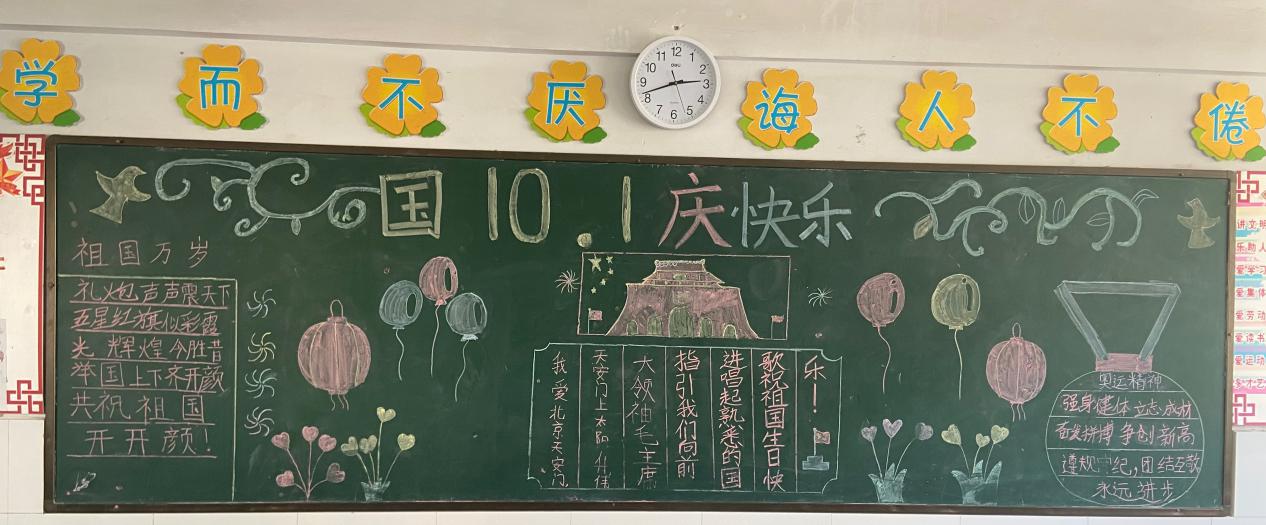 学而不厌诲人不倦
12
1
2
3
4
5
6
7
8
9
10
11
deli
国10.1庆快乐
祖国万岁
礼炮声声震天下
五星红旗似彩霞
光辉煌今胜昔
举国上下齐开颜
共祝祖国
开开颜！
我爱北京天安门
天安门上太阳升
大领袖毛主席
指引我们向前
进唱起熟悉的国
歌祝祖国生日快
乐！
奥运精神
强身健体立志成材
奋发拼搏争创新高
遵规守纪，团结互敬
永远进步
讲文明
乐助人
爱学习
爱集体
爱劳动
爱读书
爱运动